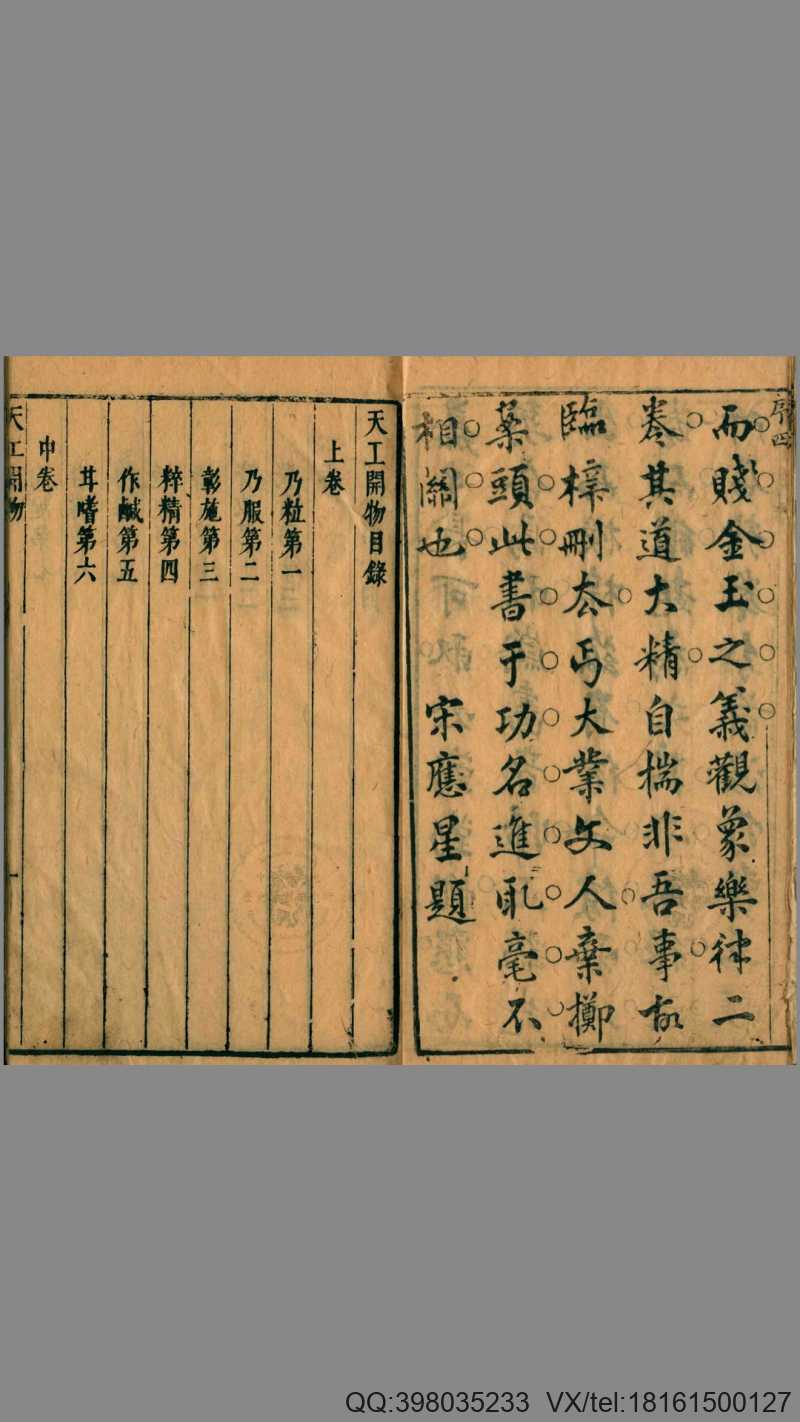 序四
而賤金玉之義觀象樂律二
卷其道大精自揣非吾事故
臨梓刪去丐大業文人棄擲
案頭此書于功名進取毫不
相關也　宋應星題
天工開物目錄
上卷
乃粒第一
乃服第二
彰施第三
粹精第四
作鹹第五
甘嗜第六
中卷
天工開物
QQ:398035233 VX/tel:18161500127